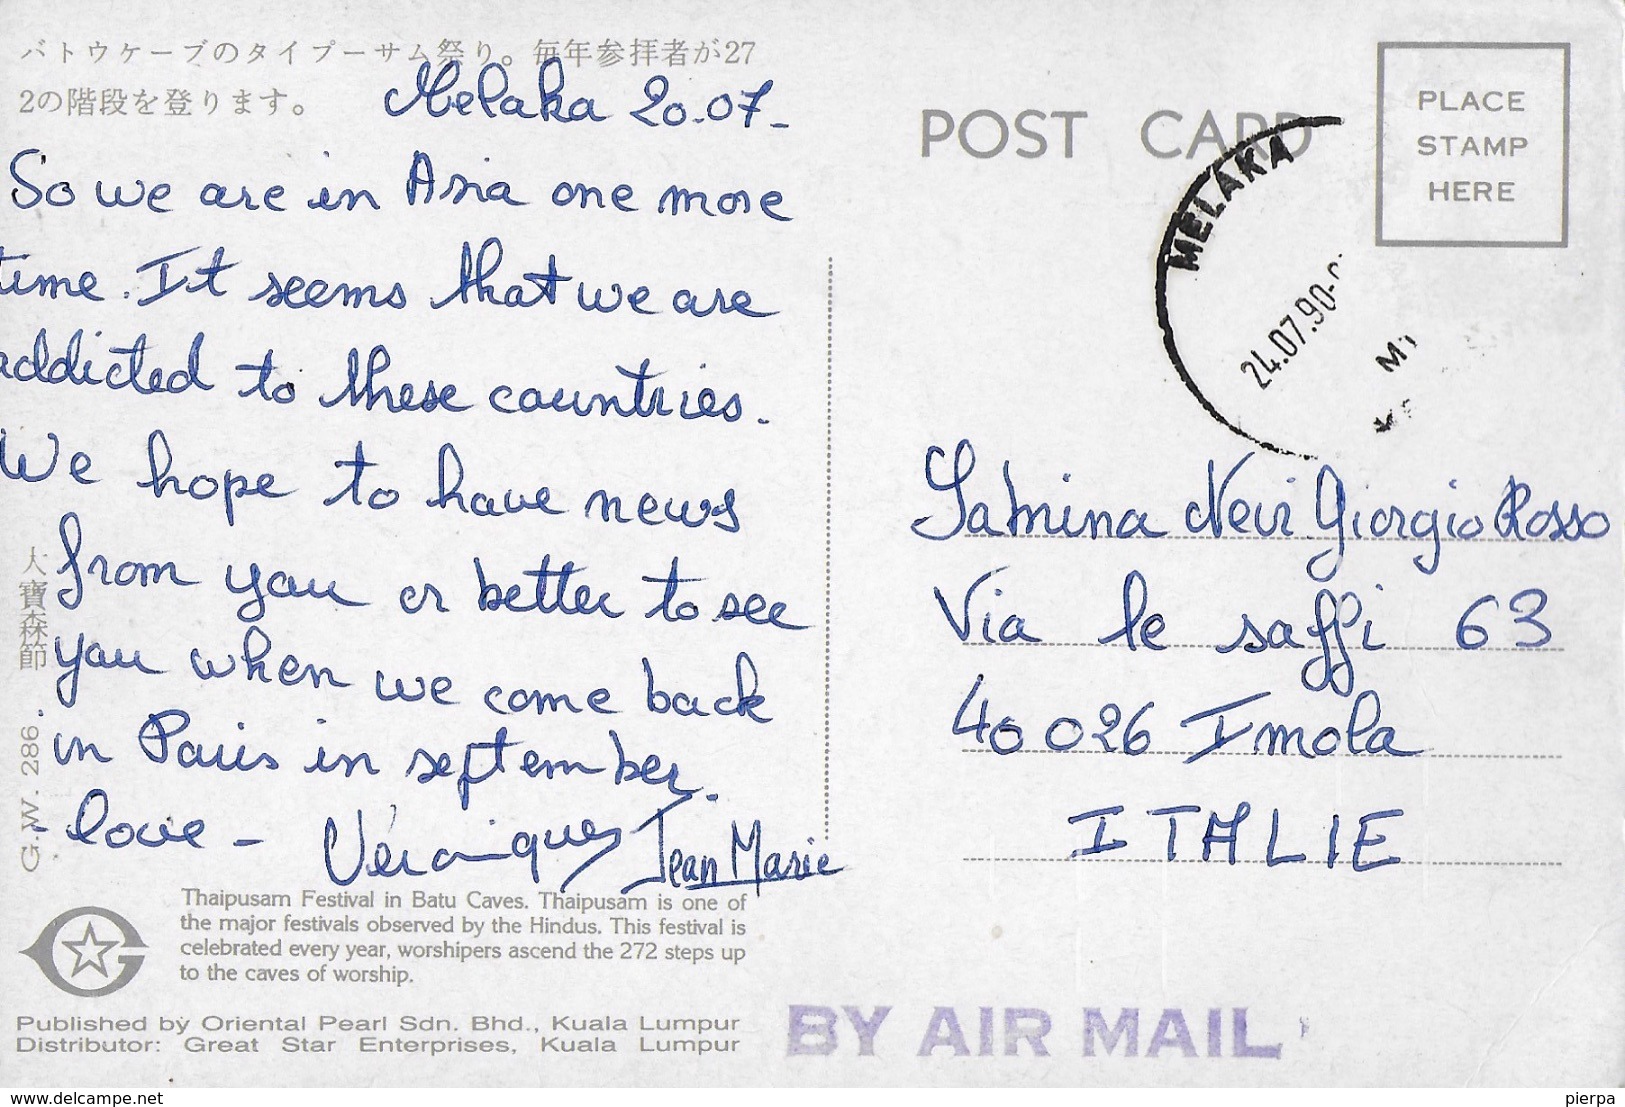 バトウケーブのタイプーサム祭り。毎年参拝者が27
2の階段を登ります。
Melaka 20.07-
So we are in Asia one more
time. It seems that we are
addicted to these countries.
We hope to have news
from you or better to see
you when we come back
in Paris in september.
- love -
Véronique Jean Marie
大寶森節
G.W. 286.
Thaipusam Festival in Batu Caves. Thaipusam is one of
the major festivals observed by the Hindus. This festival is
celebrated every year, worshipers ascend the 272 steps up
to the caves of worship.
Published by Oriental Pearl Sdn. Bhd., Kuala Lumpur
Distributor: Great Star Enterprises, Kuala Lumpur
POST CARD
PLACE
STAMP
HERE
MELAKA
24.07.90
Sabrina Nevi Giorgio Rosso
Via le saffi 63
40026 Imola
ITALIE
BY AIR MAIL
delcampe.net
pierpa